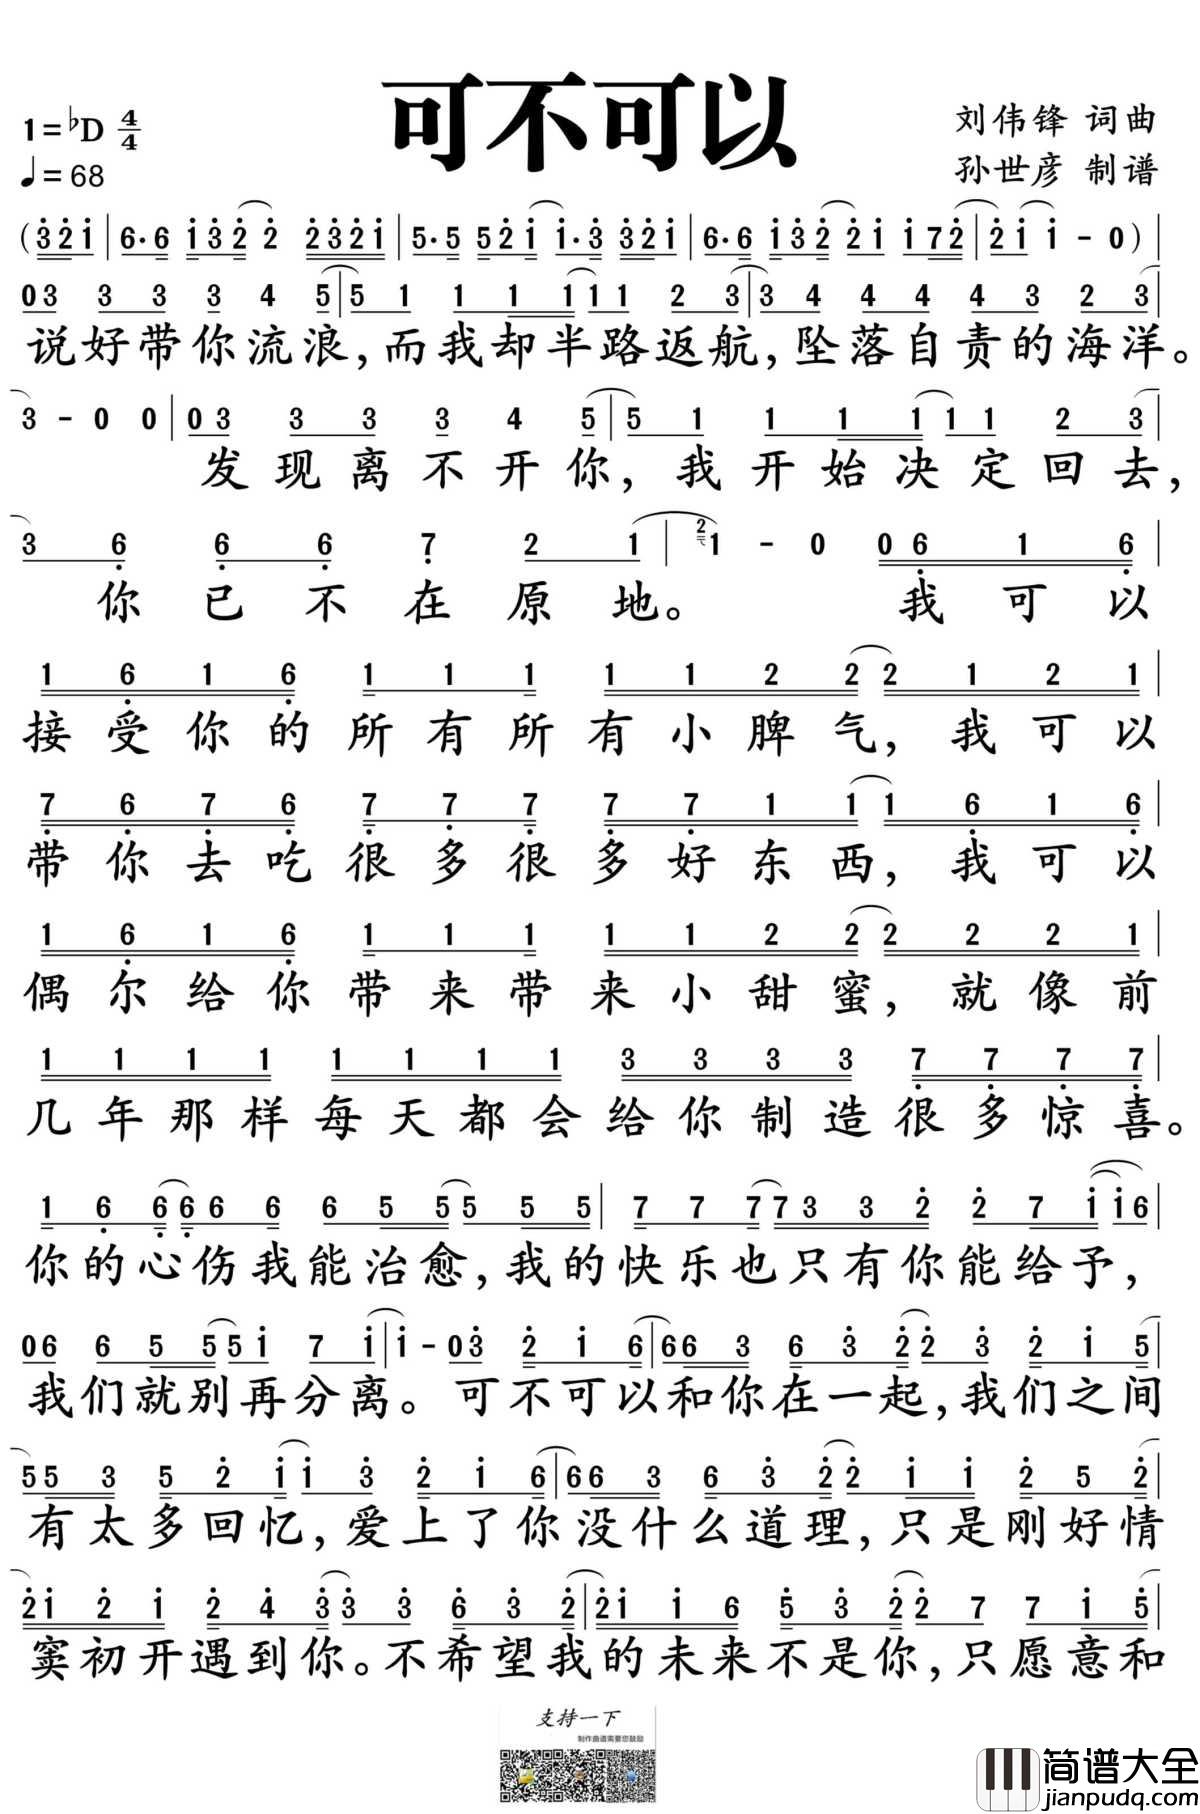 可不可以
1=♭D 4/4
♩=68
刘伟锋 词曲
孙世彦 制谱
(3 2 1 | 6· 6 1 3 2 2 2 3 2 1 | 5· 5 5 2 1 1· 3 3 2 1 | 6· 6 1 3 2 2 1 1 7 2 | 2 1 1 - 0 ) |
0 3 3 3 3 4 5 | 5 1 1 1 1 1 1 2 3 | 3 4 4 4 4 3 2 3 |
说好带你流浪,而我却半路返航,坠落自责的海洋。
3 - 0 0 | 0 3 3 3 3 4 5 | 5 1 1 1 1 1 1 2 3 |
发现离不开你,我开始决定回去,
3 6 6 6 7 2 1 | 2 1 - 0 0 6 1 6 |
你已不在原地。我可以
1 6 1 6 1 1 1 1 1 2 2 2 1 2 1 |
接受你的所有所有小脾气,我可以
7 6 7 6 7 7 7 7 7 1 1 1 6 1 6 |
带你去吃很多很多好东西,我可以
1 6 1 6 1 1 1 1 1 2 2 2 2 2 1 |
偶尔给你带来带来小甜蜜,就像前
1 1 1 1 1 1 1 1 3 3 3 3 7 7 7 7 |
几年那样每天都会给你制造很多惊喜。
1 6 6 6 6 6 6 5 5 5 5 5 | 7 7 7 7 3 3 2 2 7 1 1 6 |
你的心伤我能治愈,我的快乐也只有你能给予,
0 6 6 5 5 5 1 7 1 | 1 - 0 3 2 1 6 | 6 6 3 6 3 2 2 3 2 1 5 |
我们就别再分离。可不可以和你在一起,我们之间
5 5 3 5 2 1 1 3 2 1 6 | 6 6 3 6 3 2 2 1 1 2 5 2 |
有太多回忆,爱上了你没什么道理,只是刚好情
2 1 2 1 2 4 3 3 3 6 3 2 | 2 1 1 6 5 3 2 2 7 7 1 5 |
窦初开遇到你。不希望我的未来不是你,只愿意和
支持一下
制作曲谱需要您鼓励
简谱大全
jianpudq.com